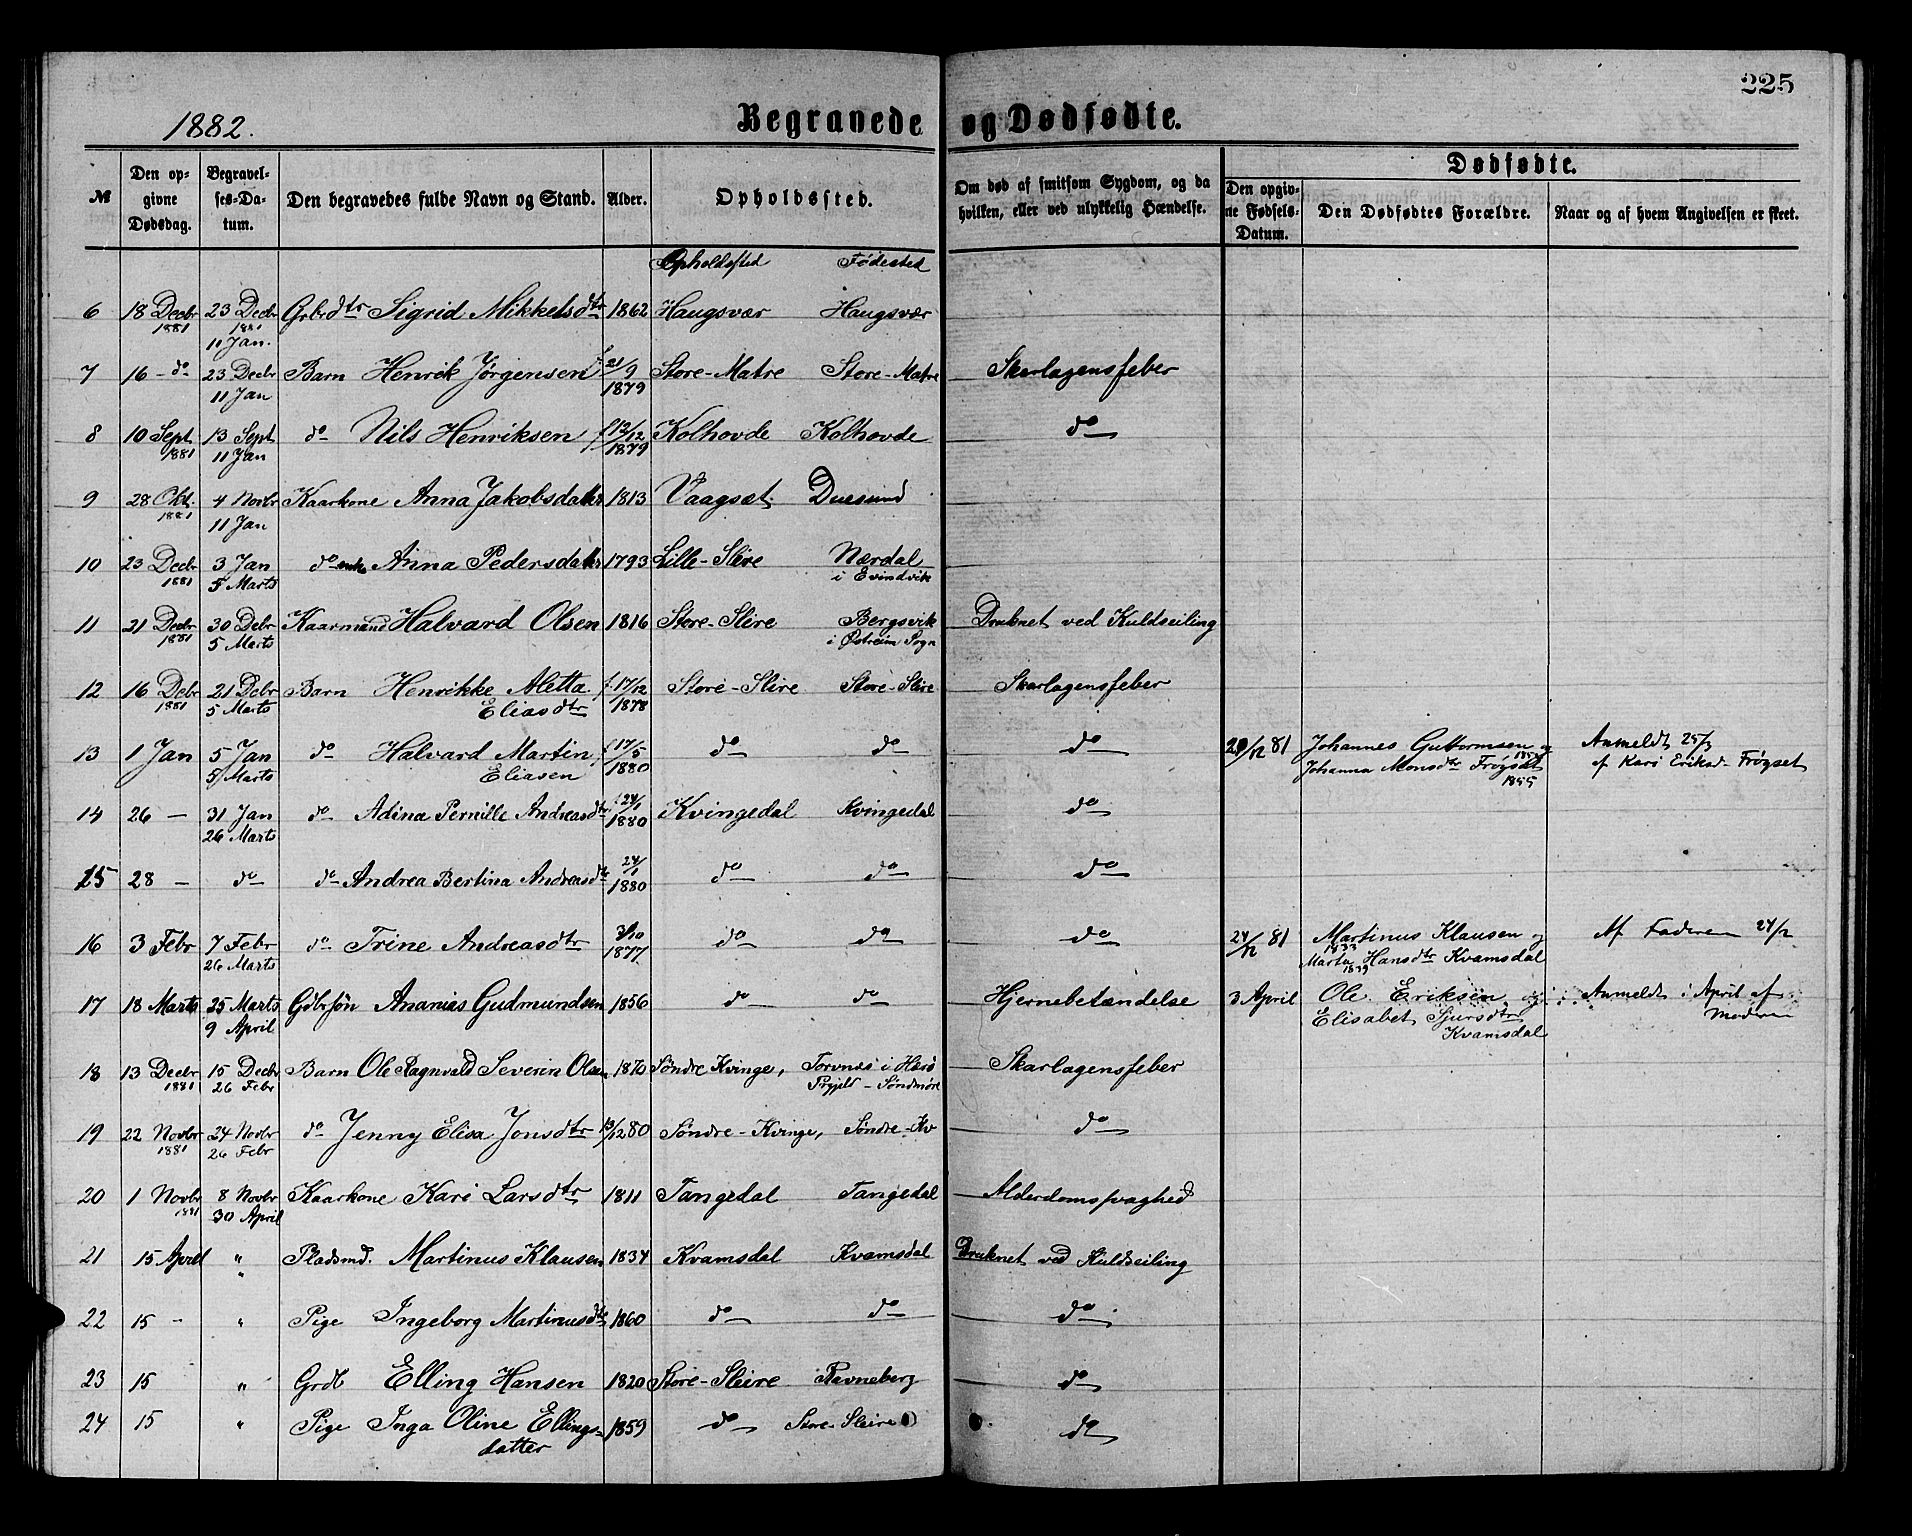 225
1882.
Begravede og Dødfødte.
№
Den opgivne Dødsdag.
Begravelses-Datum.
Den begravedes fulde Navn og Stand.
Alder.
Opholdssted.
Om død af smitsom Sygdom, og da hvilken, eller ved ulykkelig Hændelse.
Dødfødte.
Den opgivne Fødsels-Datum.
Den Dødfødtes Forældre.
Naar og af hvem Angivelsen er skeet.
Opholdssted Fødested
6 18 Decbr 23 Decbr Gbrdtr Sigrid Mikkelsdtr 1862 Haugsvær Haugsvær
1881 1881
11 Jan.
7 16 - do 23 Decbr Barn Henrik Jørgensen f 21/9 Store-Matre Store-Matre Skarlagensfeber
11 Jan 1879
8 10 Sept 13 Sept do Nils Henriksen f 12/12 Kolhovde Kolhovde do
1881 11 Jan 1879
9 28 Okt. 4 Novbr Kaarkone Anna Jakobsdatter 1813 Vaagsæt Duesund
1881 11 Jan
10 23 Decbr 3 Jan do enke Anna Pedersdatter 1793 Lille-Slire Nærdal
1881 5 Marts i Evindvik
11 21 Decbr 30 Debr Kaarmand Halvard Olsen 1816 Store-Slire Bergsvik Druknet ved Kuldseiling
1881 5 Marts i Østreim Sogn
12 16 Debr 21 Debr Barn Henrikke Aletta f. 17/12 Store-Slire Store-Slire Skarlagensfeber
1881 5 Marts Eliasdtr 1878
13 1 Jan 5 Jan do Halvard Martin f 17/5 do do do 29/12 81 Johannes Guttormsen og Anmeldt 25/3
5 Marts Eliasen 1880 Johanna Monsdtr Frøyset af Kari Eriksd. Frøyset
1855
14 26 - 31 Jan do Adina Pernille Andreasdtr f. 24/1 Kvingedal Kvingedal do
26 Marts 1880
15 28 - do do Andrea Bertina Andreasdtr 24/1 do do do
1880
16 3 Febr 7 Febr do Trine Andreasdtr 3/10 do do do 24/12 81 Martinus Klausen og Af Faderen 24/2
26 Marts 1877 1833
Marta Hansdtr Kvamsdal
1839
17 18 Marts 25 Marts Gdbrsøn Ananias Gudmundsen 1856 do do Hjernebetændelse 3 April Ole Eriksen og Anmeldt i April af
9 April Elisabet Sjursdtr Moderen
Kvamsdal
18 13 Decbr 15 Decbr Barn Ole Ragnvald Severin Olsen 1870 Søndre Kvinge, Torvnes i Herø Skarlagensfeber
1881 26 Febr Prgjeld - Søndmøre
19 22 Novbr 24 Novbr do Jenny Elisa Jonsdtr 13/12 80 Søndre-Kvinge, Søndre-Kv do
1881 26 Febr
20 1 Novbr 8 Novbr Kaarkone Kari Larsdtr 1811 Tangedal Tangedal Alderdomssvaghed
1881 30 April
21 15 April " Pladsmd. Martinus Klausen 1834 Kvamsdal Kvamsdal Druknet ved Kuldseiling
"
22 15 - " Pige Ingeborg Martinusdtr 1860 do do do
23 15 " Grdb Elling Hansen 1820 Store-Sleire Ravneberg do
24 15 " Pige Inga Oline Ellings- 1859 do Store-Sleire do
datter